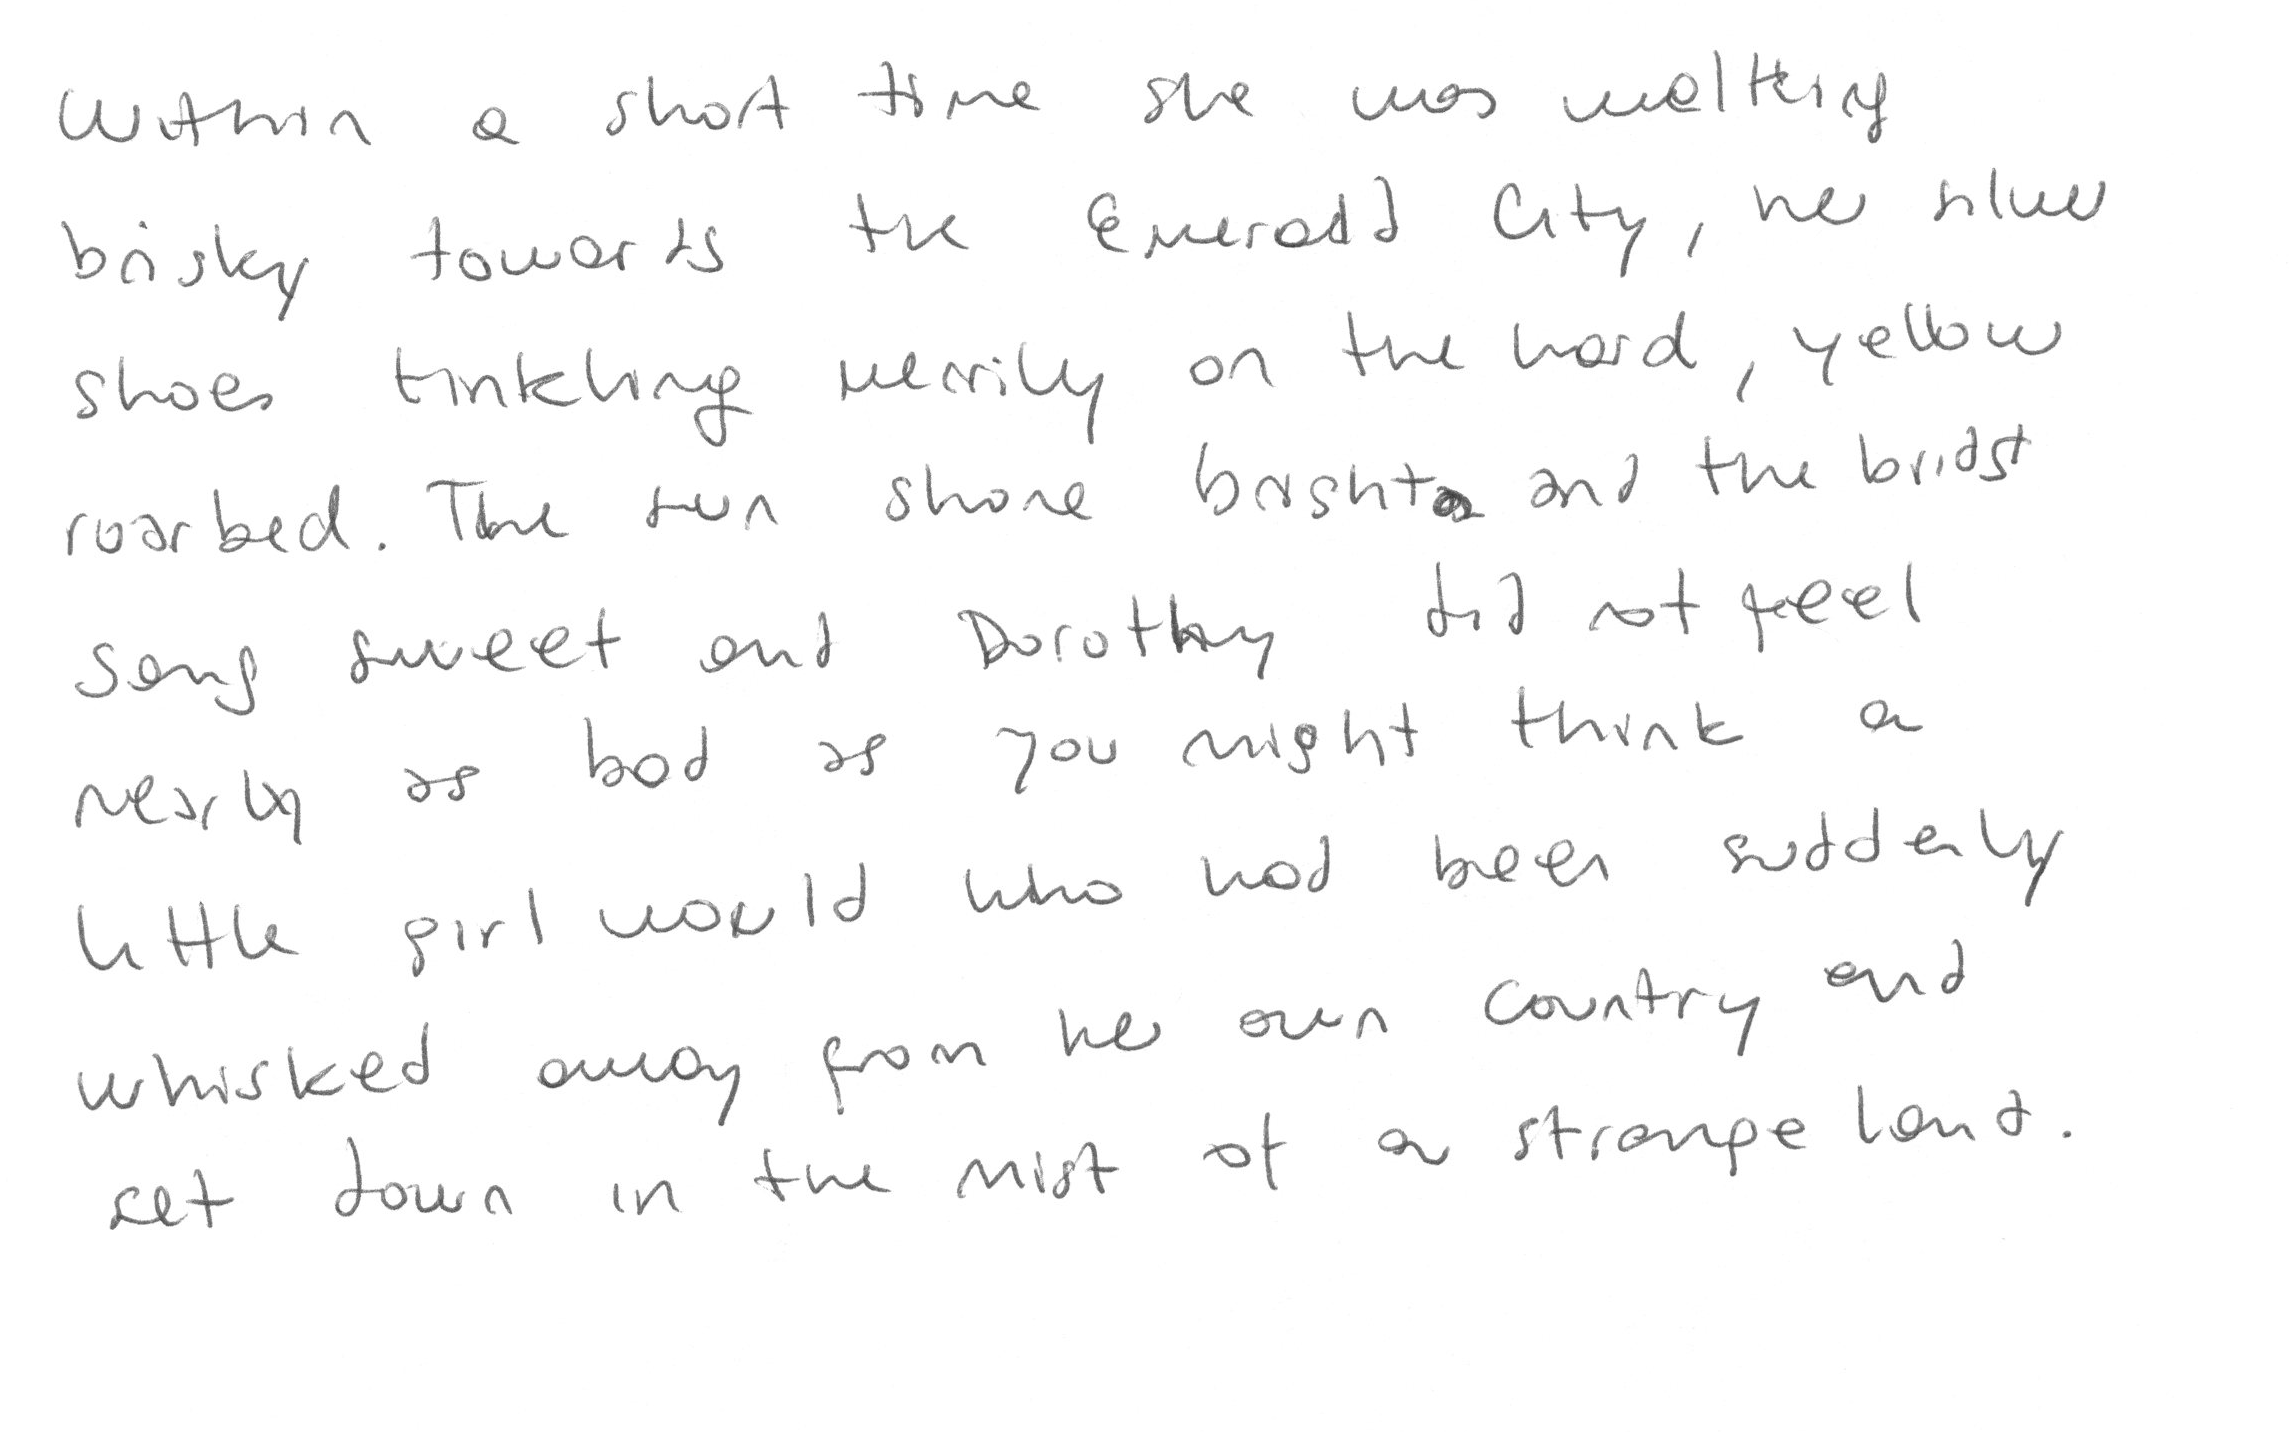 Within a short time she was walking
brisky towards the Emerald City, her silver
shoes tinkling merrily on the hard, yellow
roarbed. The sun shone bright and the bridst
sang sweet and Dorothy did not feel
nearly as bad as you might think a
little girl would who had been suddenly
whisked away from her own country and
set down in the mist of a strange land.